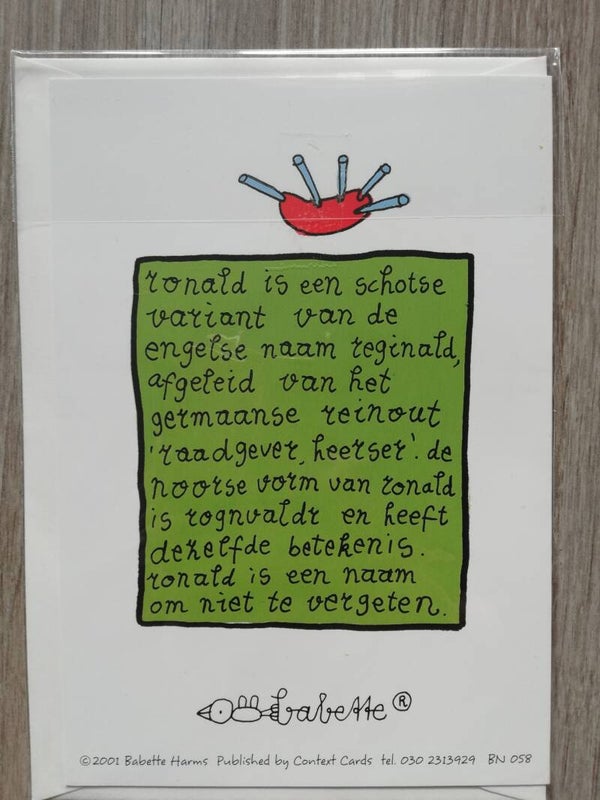 ronald is een schotse
variant van de
engelse naam reginald,
afgeleid van het
germaanse reinout
'raadgever, heerser'. de
noorse vorm van ronald
is rognvaldr en heeft
dezelfde betekenis.
ronald is een naam
om niet te vergeten.
babette®
©2001 Babette Harms Published by Context Cards tel. 030 2313929 BN 058